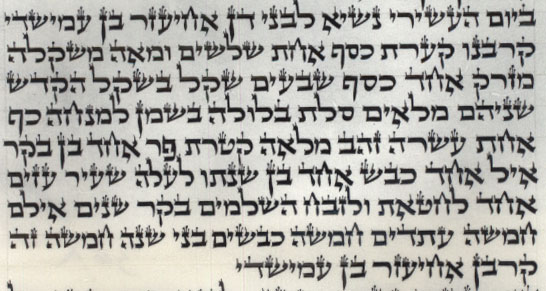 ביום העשירי נשיא לבני דן אחיעזר בן עמישדי
קרבנו קערת כסף אחת שלשים ומאה משקלה
מזרק אחד כסף שבעים שקל בשקל הקדש
שניהם מלאים סלת בלולה בשמן למנחה כף
אחת עשרה זהב מלאה קטרת פר אחד בן בקר
איל אחד כבש אחד בן שנתו לעלה שעיר עזים
אחד לחטאת ולזבח השלמים בקר שנים אילם
חמשה עתדים חמשה כבשים בני שנה חמשה זה
קרבן אחיעזר בן עמישדי